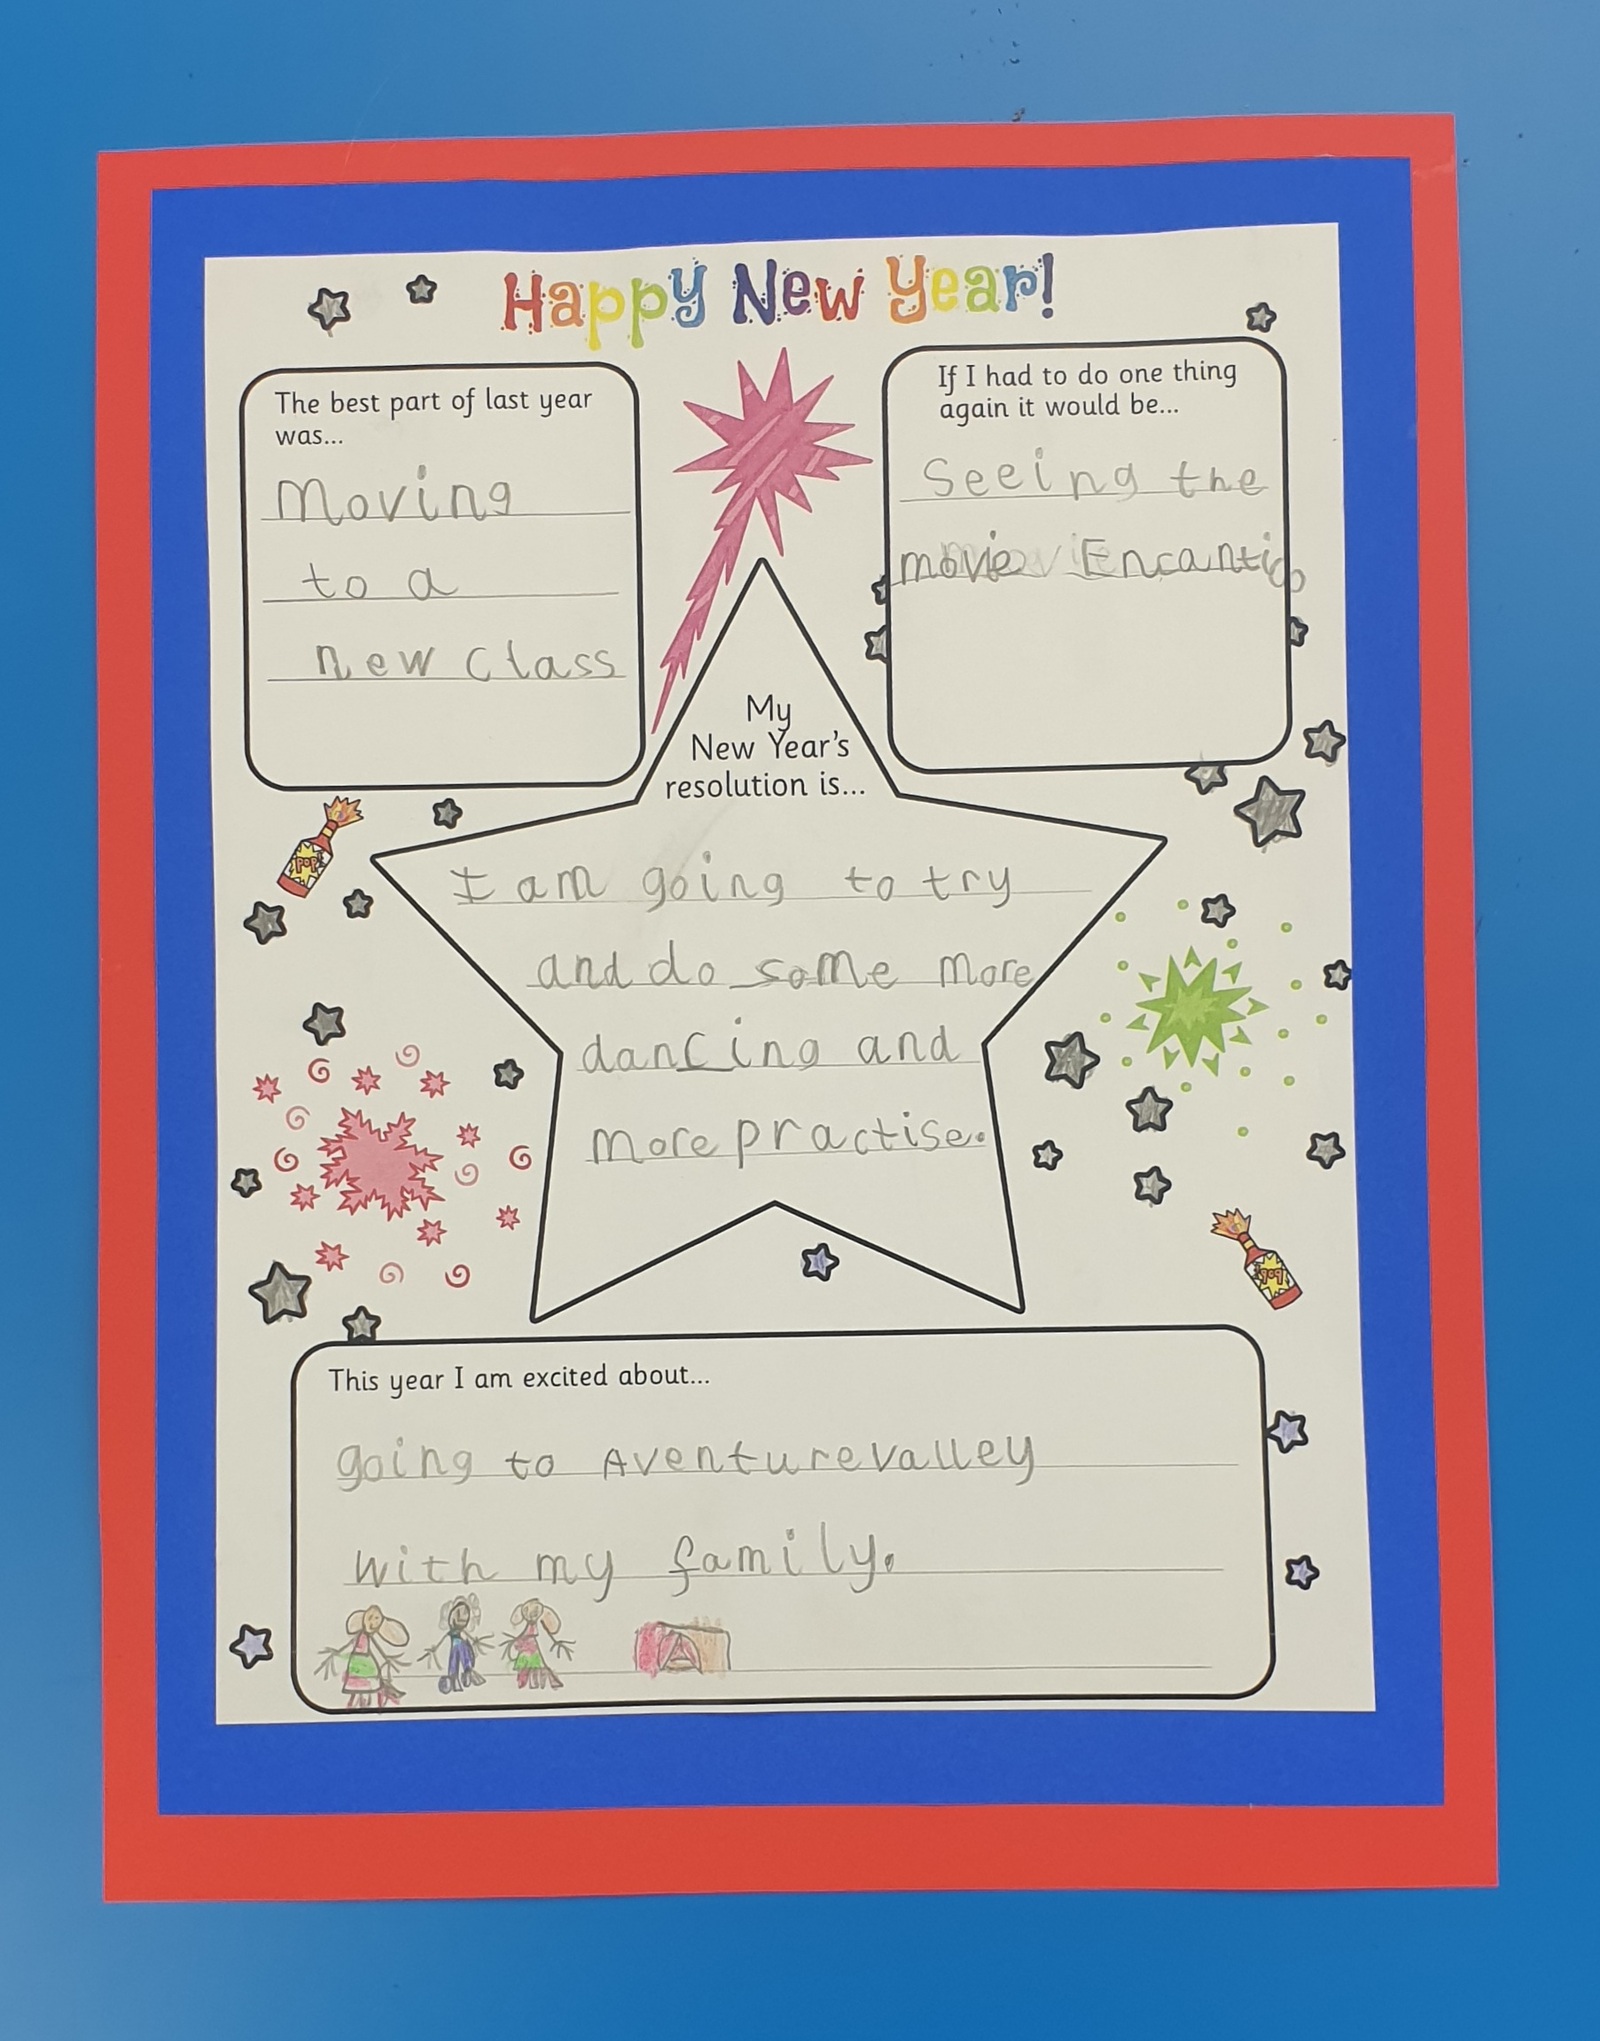 Happy New Year!
The best part of last year
was...
Moving
to a
new class
If I had to do one thing
again it would be...
Seeing the
movie Encantio
My
New Year's
resolution is...
I am going to try
and do some more
dancing and
more practise.
POP
POP
This year I am excited about...
going to Aventurevalley
with my family.